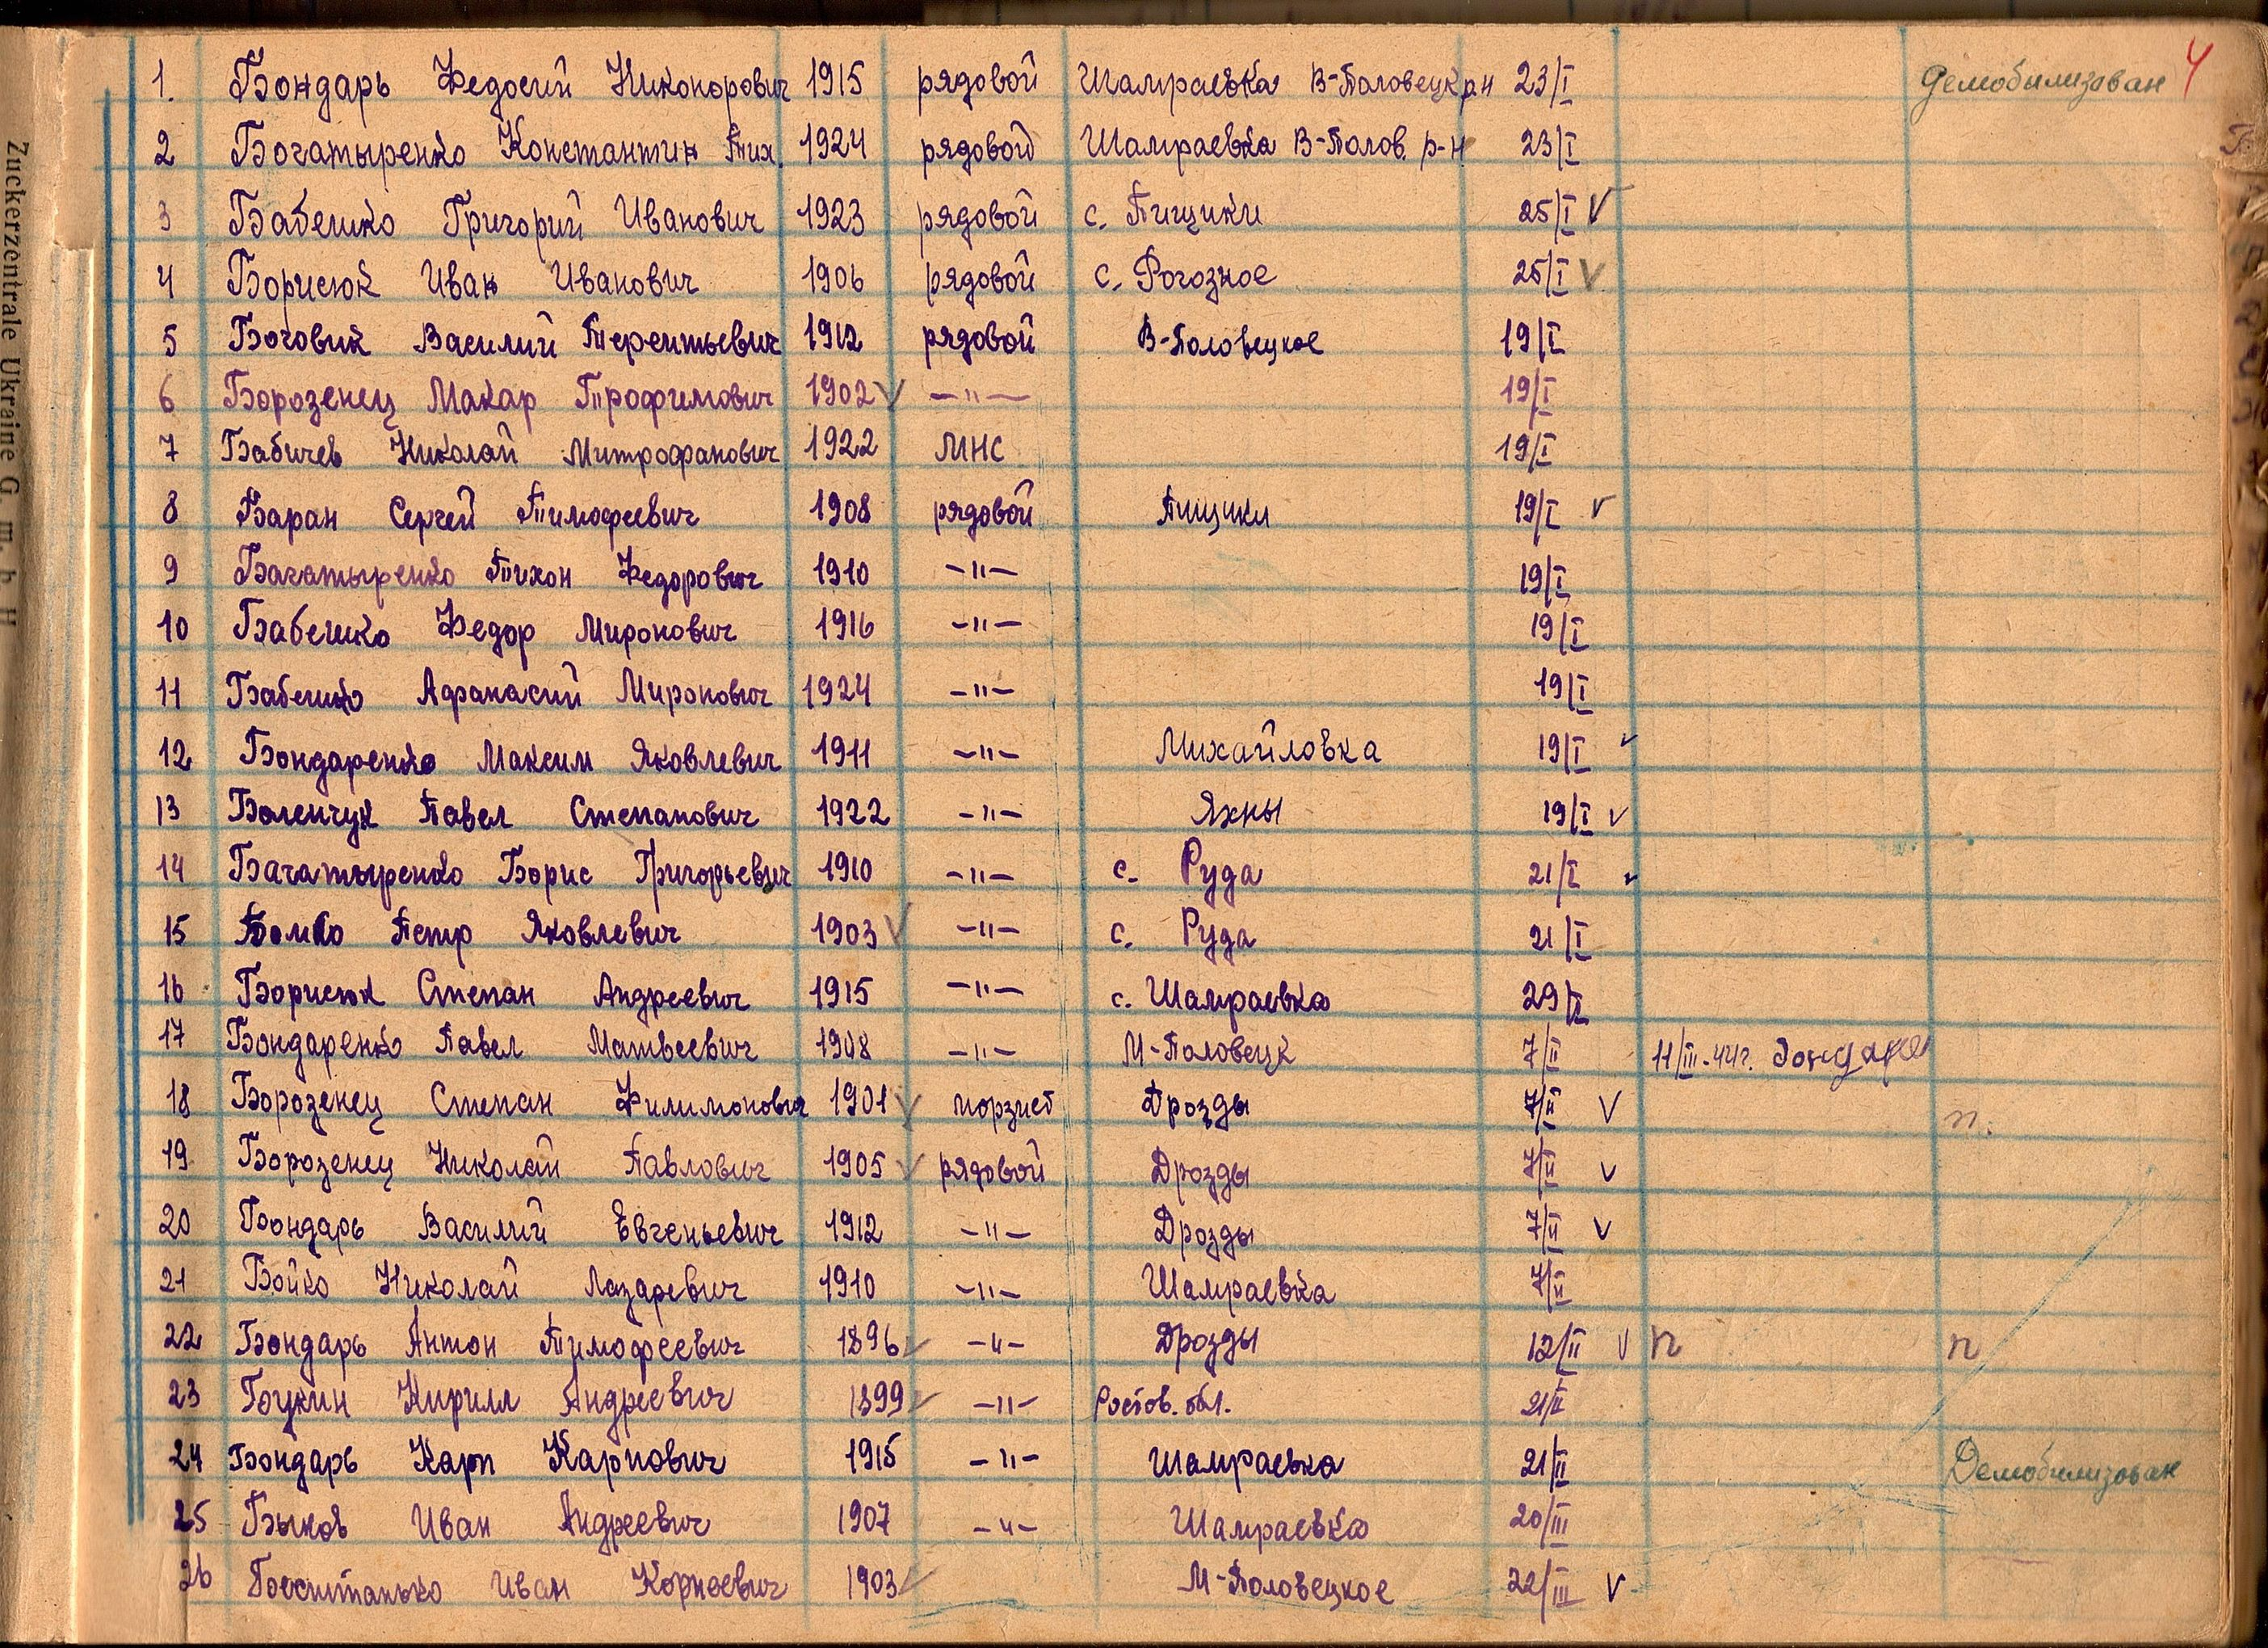 4
1. Бондарь Федосий Никонорович 1915 рядовой Шамраевка В-Половецк рн 23/I Демобилизован
2 Богатыренко Константин Тих. 1924 рядовой Шамраевка В-Полов. р-н 23/I
3 Бабешко Григорий Иванович 1923 рядовой с. Пищики 25/I V
4 Борисюк Иван Иванович 1906 рядовой с. Рогозное 25/I V
5 Боговик Василий Терентьевич 1912 рядовой В-Половецкое 19/I
6 Борозенец Макар Трофимович 1902 V —"— 19/I
7 Бабичев Николай Митрофанович 1922 МНС 19/I
8 Баран Сергей Тимофеевич 1908 рядовой Пищики 19/I V
9 Багатыренко Тихон Федорович 1910 —"— 19/I
10 Бабешко Федор Миронович 1916 —"— 19/I
11 Бабешко Афанасий Миронович 1924 —"— 19/I
12 Бондаренко Максим Яковлевич 1911 —"— Михайловка 19/I V
13 Боленчук Павел Степанович 1922 —"— Яхны 19/I V
14 Багатыренко Борис Григорьевич 1910 —"— с. Руда 21/I V
15 Бомко Петр Яковлевич 1903 V —"— с. Руда 21/I
16 Борисюк Степан Андреевич 1915 —"— с. Шамраевка 29/I
17 Бондаренко Павел Матвеевич 1908 —"— М-Половецк 7/II 11/III-44г.
18 Борозенец Степан Филимонович 1901 V Дрозды 7/II V п.
19 Борозенец Николай Павлович 1905 V рядовой Дрозды 7/II V
20 Бондарь Василий Евгеньевич 1912 —"— Дрозды 7/II V
21 Бойко Николай Лазаревич 1910 —"— Шамраевка 7/II
22 Бондарь Антон Тимофеевич 1896 V —"— Дрозды 12/II V п п
23 Букин Кирилл Андреевич 1899 V —"— Ростов. обл. 21/II
24 Бондарь Карп Карпович 1915 —"— Шамраевка 21/II Демобилизован
25 Быков Иван Андреевич 1907 —"— Шамраевка 20/III
26 Иван Корнеевич 1903 V М-Половецкое 22/III V
Zuckerzentrale Ukraine G. m. b. H.